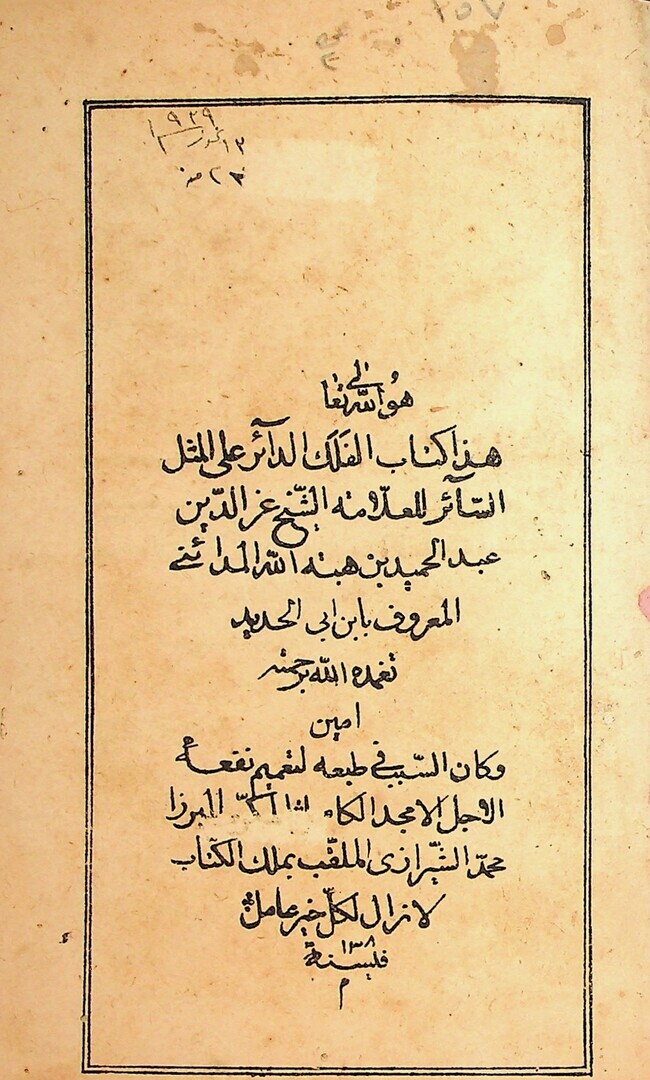 ١٥٧
١٩٢٩
هو الله تعالى
هذا كتاب الفلك الدآئر على المثل
السّآئر للعلّامة الشّيخ عز الدّين
عبد الحميد بن هبته الله المدائنے
المعروف بابن ابى الحديد
تغمده الله برحمته
امين
وكان السّبب فى طبعه لتعميم نفعه
الاجل الامجد الميرزا
محمّد الشّيرازى الملقّب بملك الكتاب
لا زال لكلّ خير عامل
فليسنة
م